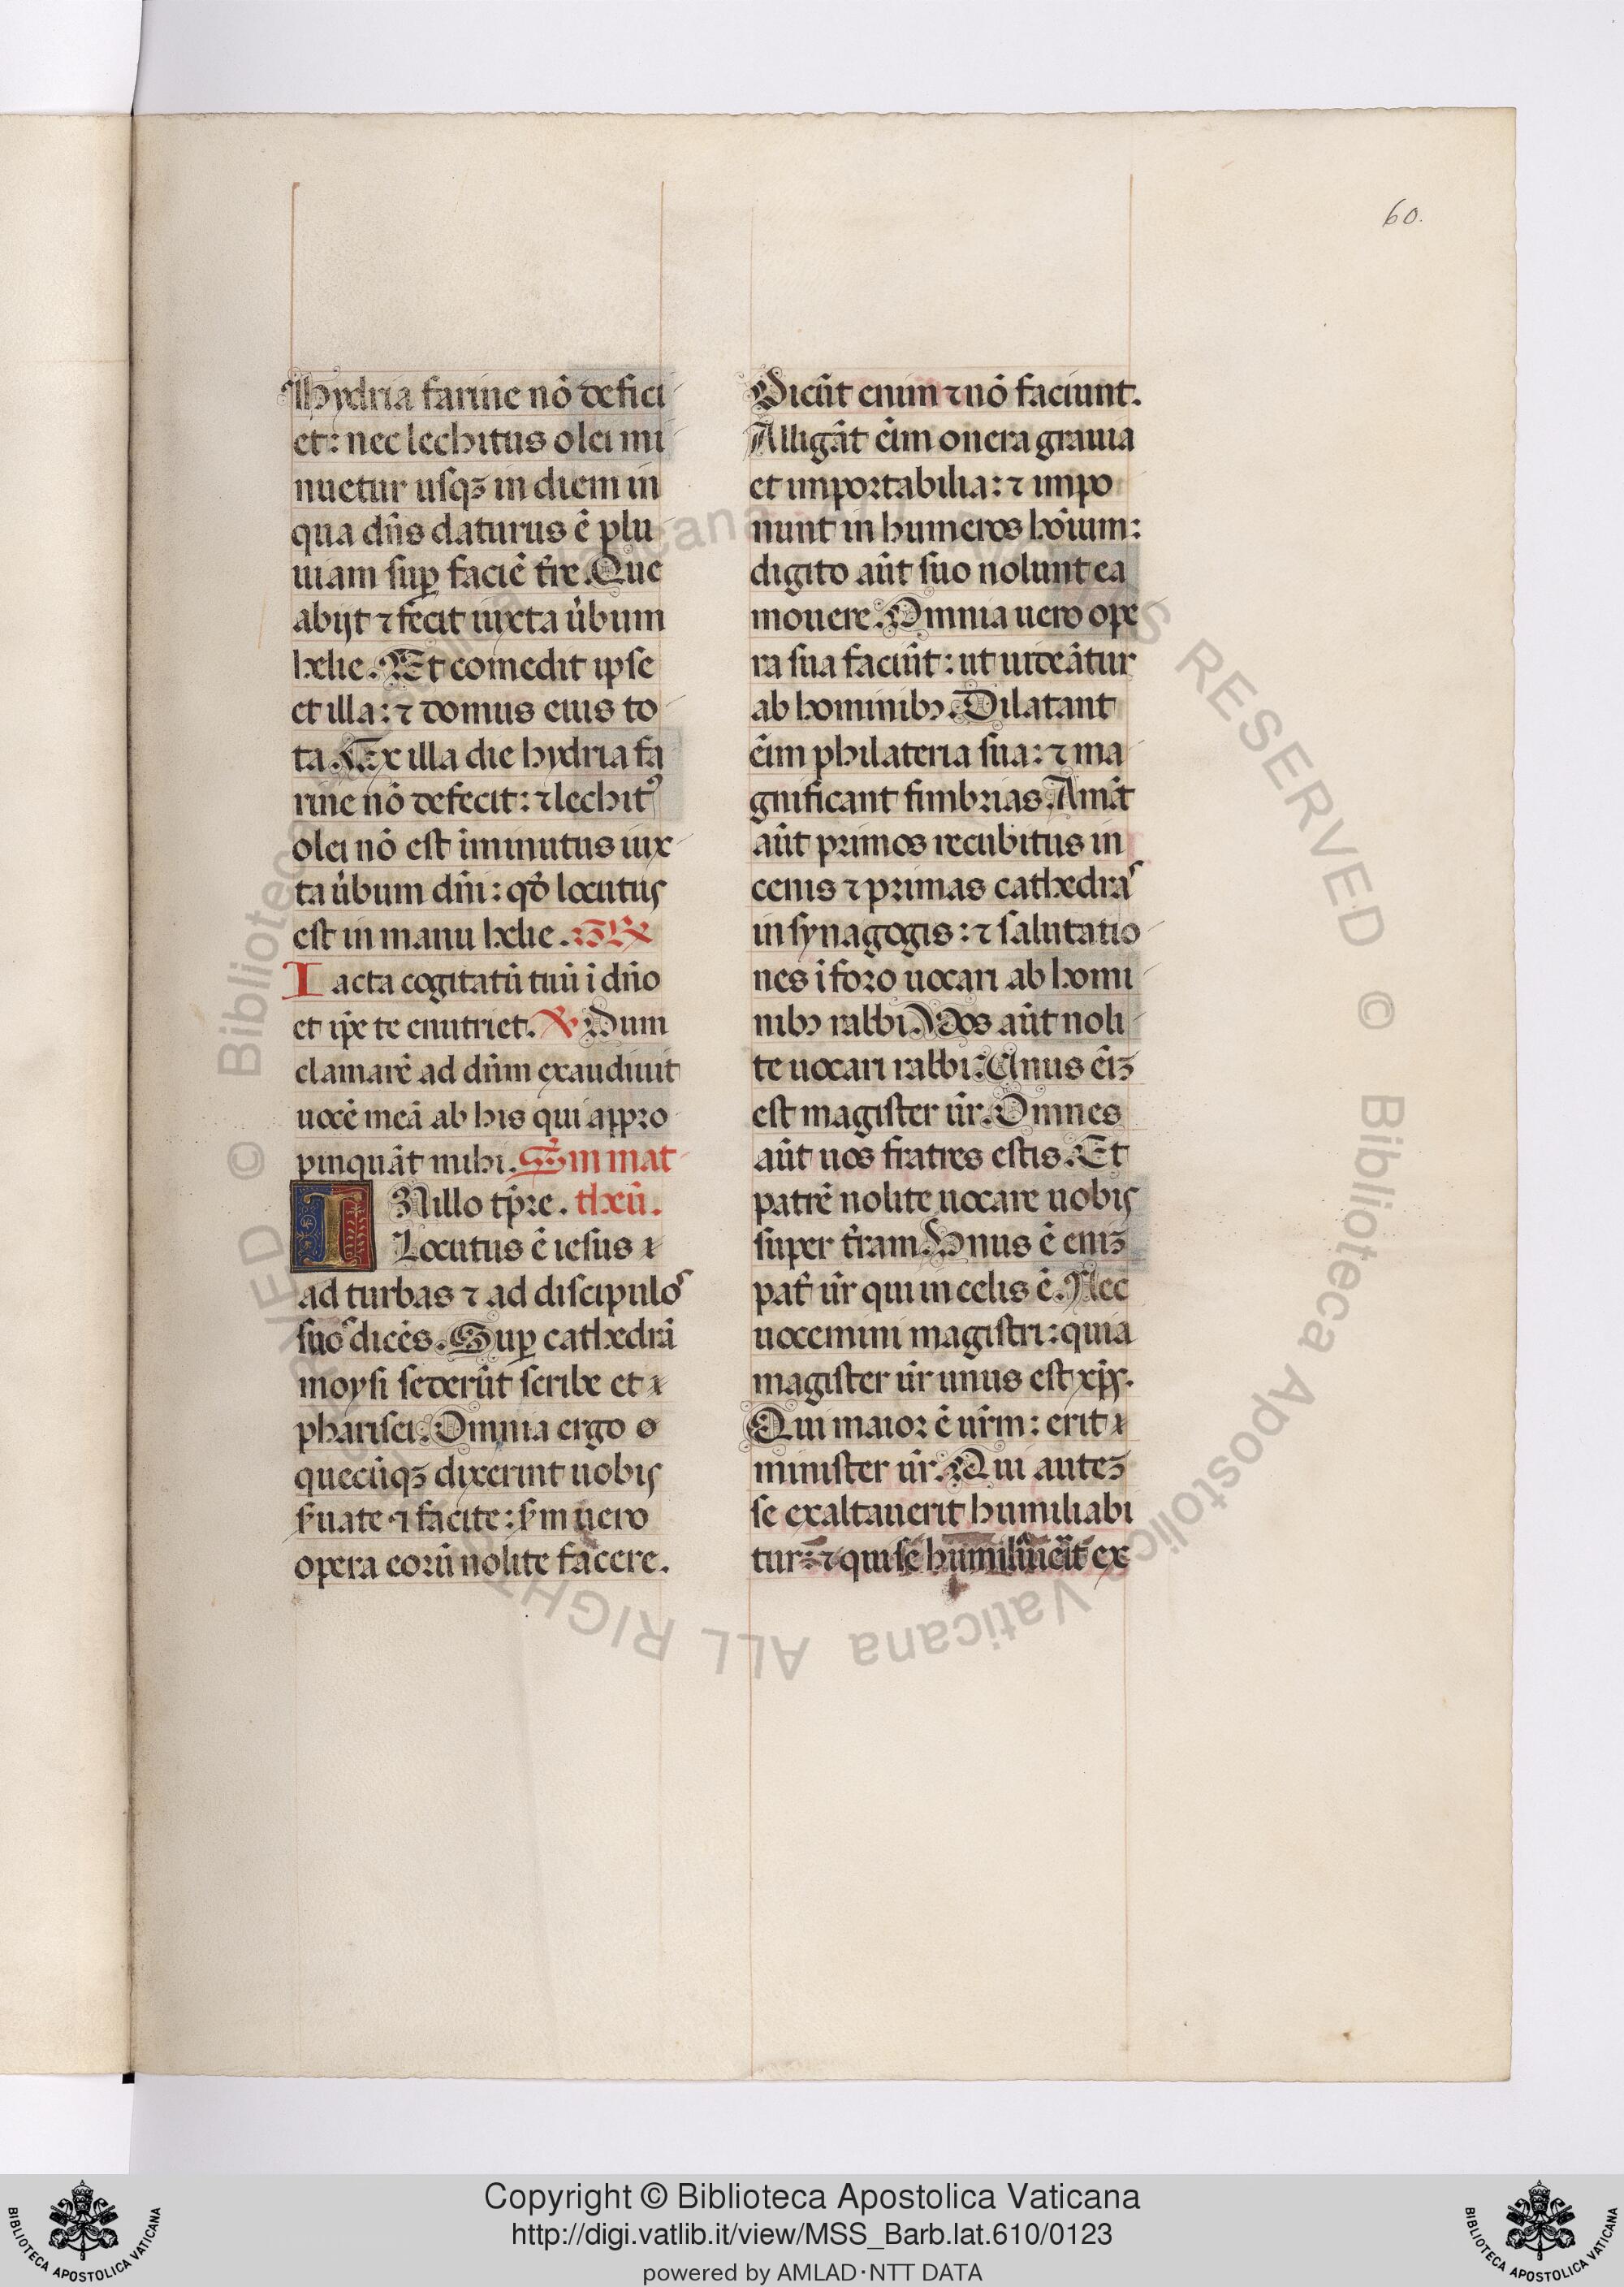 60.
Hydria farine nō defici
et: nec lechitus olei mi
nuetur usqꝫ in diem in
qua dn̄s daturus ē plu
uiam suꝑ faciē t̄re. Que
abijt ⁊ fecit iuxta u̇bum
helie. Et comedit ipse
et illa: ⁊ domus eius to
ta. Ex illa die hydria fa
rine nō defecit: ⁊ lechitꝰ
olei nō est īminutus iux
ta u̇bum dn̄i: qd̄ locutus
est in manu helie. G̃R
Iacta cogitatū tuū ī dn̄o
et ip̄e te enutriet. ℣ Dum
clamarē ad dn̄m exaudiuit
uocē meā ab his qui appro
pinquāt mihi. S. m mat
INillo tp̄re. theū.
Locutus ē iesus
ad turbas ⁊ ad discipulos
suos dicēs. Suꝑ cathedrā
moysi sederūt scribe et
pharisei. Omnia ergo o
quecūqꝫ dixerint uobis
s̄uate ⁊ facite: s̄m uero
opera eorū nolite facere.
Dicūt enim ⁊ nō faciunt.
Alligāt ēim onera grauia
et importabilia: ⁊ impo
nunt in humeros hoīum:
digito aūt suo nolunt ea
mouere. Omnia uero ope
ra sua faciūt: ut uideātur
ab hominibꝫ. Dilatant
ēim philateria sua: ⁊ ma
gnificant fimbrias. Amāt
aūt primos recubitus in
cenis ⁊ primas cathedras
in synagogis: ⁊ salutatio
nes ī foro uocari ab homi
nibꝫ rabbi. Uos aūt noli
te uocari rabbi. Unus ēiꝫ
est magister ur̄. Omnes
aūt uos fratres estis. Et
patrē nolite uocare uobis
super t̄ram. Unus ē eniꝫ
pat̄ ur̄ qui in celis ē. Nec
uocemini magistri: quia
magister ur̄ unus est xp̄s.
Qui maior ē ur̄m: erit
minister ur̄. Qui auteꝫ
se exaltauerit humiliabi
tur: ⁊ qui se humiliūerit ex
© Biblioteca Apostolica Vaticana ALL RIGHTS RESERVED
Copyright © Biblioteca Apostolica Vaticana
http://digi.vatlib.it/view/MSS_Barb.lat.610/0123
powered by AMLAD·NTT DATA
BIBLIOTECA APOSTOLICA VATICANA
BIBLIOTECA APOSTOLICA VATICANA